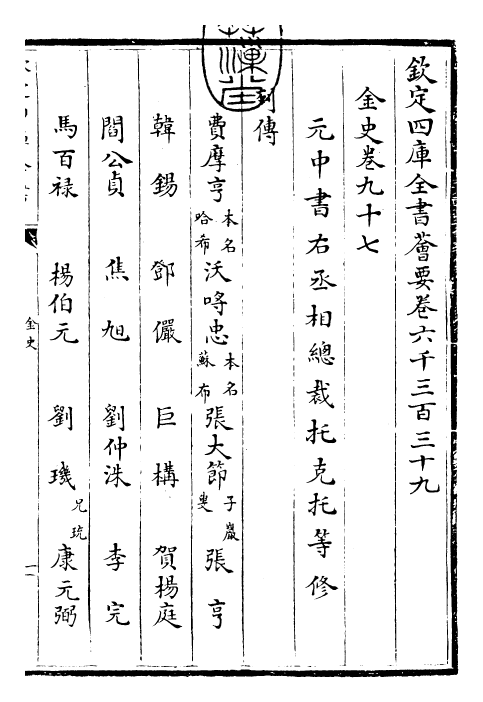 欽定四庫全書薈要卷六千三百三十九
金史卷九十七
元中書右丞相總裁托克托等修
列傳
費摩亨 本名哈希 沃哷忠 本名蘇布 張大節 子巖叟 張亨
韓錫 鄧儼 巨構 賀楊庭
閻公貞 焦旭 劉仲洙 李完
馬百禄 楊伯元 劉璣 兄珫 康元弼
金史
一